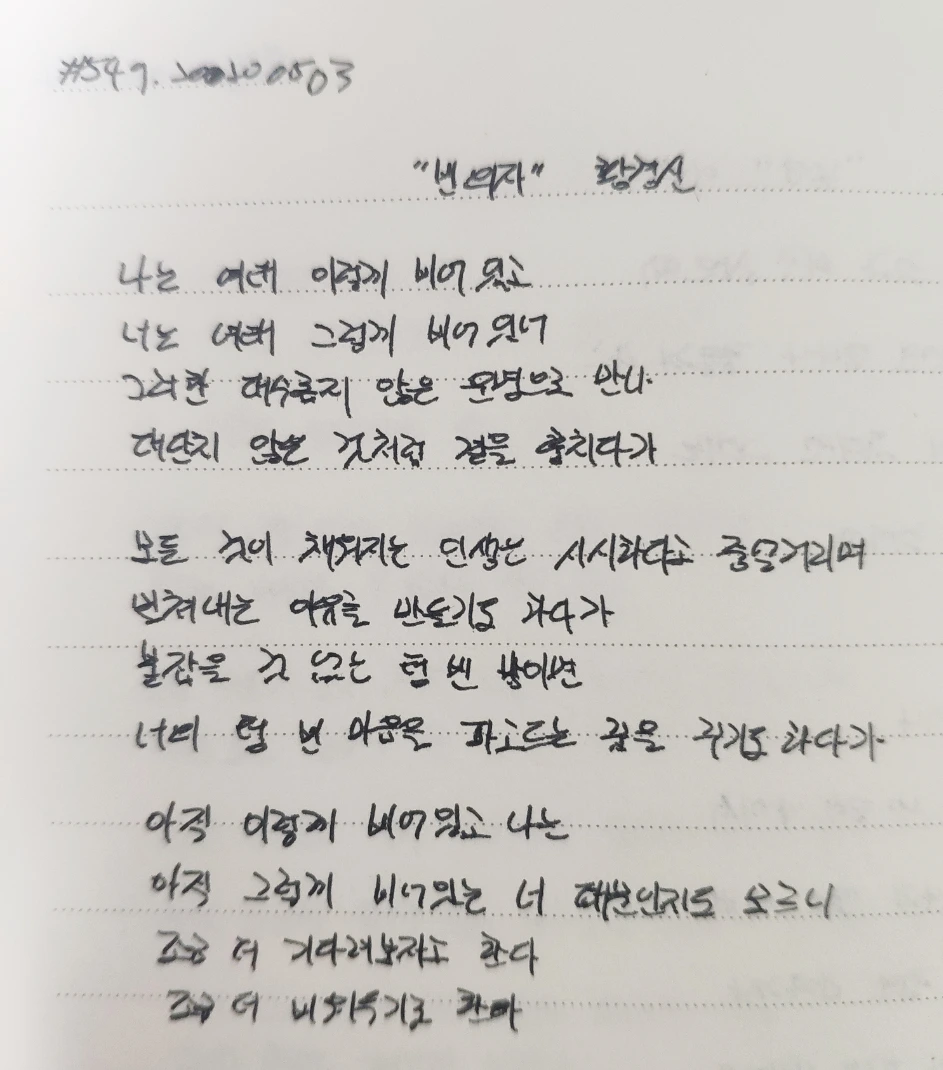 #549. 20200503
"빈 의자" 황경신
나는 여태 이렇게 비어 있고
너는 여태 그렇게 비어 있어
그러한 대수롭지 않은 운명으로 만나
대단치 않은 것처럼 곁을 훔치다가
모든 것이 채워지는 인생은 시시하다고 중얼거리며
밀쳐내는 이유를 만들기도 하다가
붙잡을 것 없는 텅 빈 밤이면
너의 텅 빈 마음을 파고드는 꿈을 꾸기도 하다가
아직 이렇게 비어 있고 나는
아직 그렇게 비어있는 너 때문인지도 모르니
조금 더 기다려보자고 한다
조금 더 비워두기로 한다